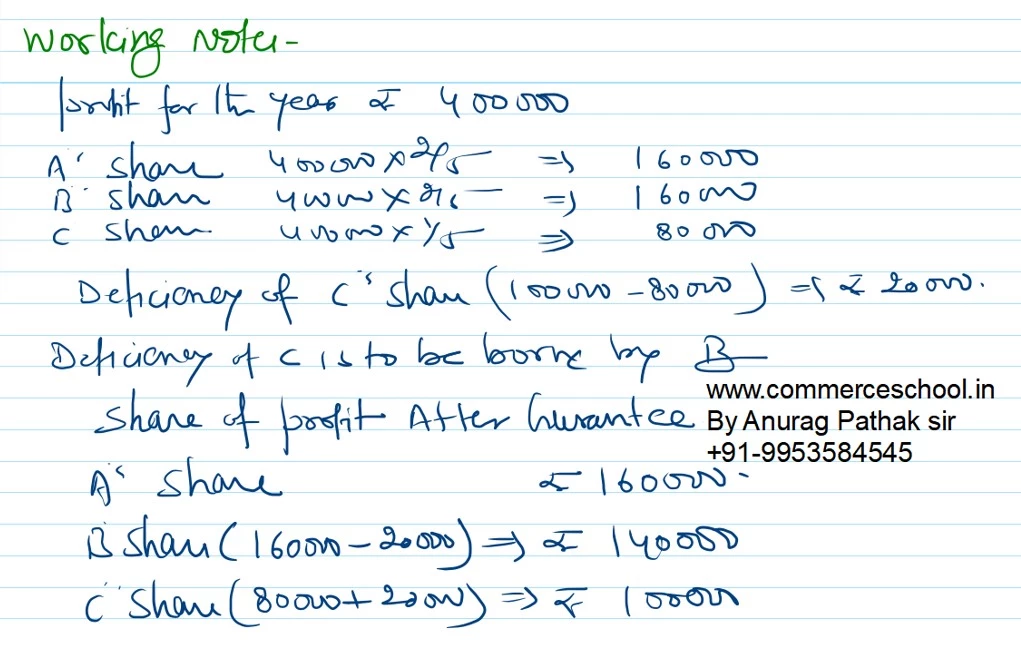 Working Note-
profit for the year ₹ 400000
A' Share 400000 × 2/5 => 160000
B' Share 400000 × 2/5 => 160000
C Share 400000 × 1/5 => 80000
Deficiency of C's Share (100000 - 80000) => ₹ 20000.
Deficiency of C is to be borne by B
Share of profit After Gurantee
www.commerceschool.in
By Anurag Pathak sir
+91-9953584545
A's Share ₹ 160000-
B Share (160000 - 20000) => ₹ 140000
C' Share (80000 + 20000) => ₹ 100000